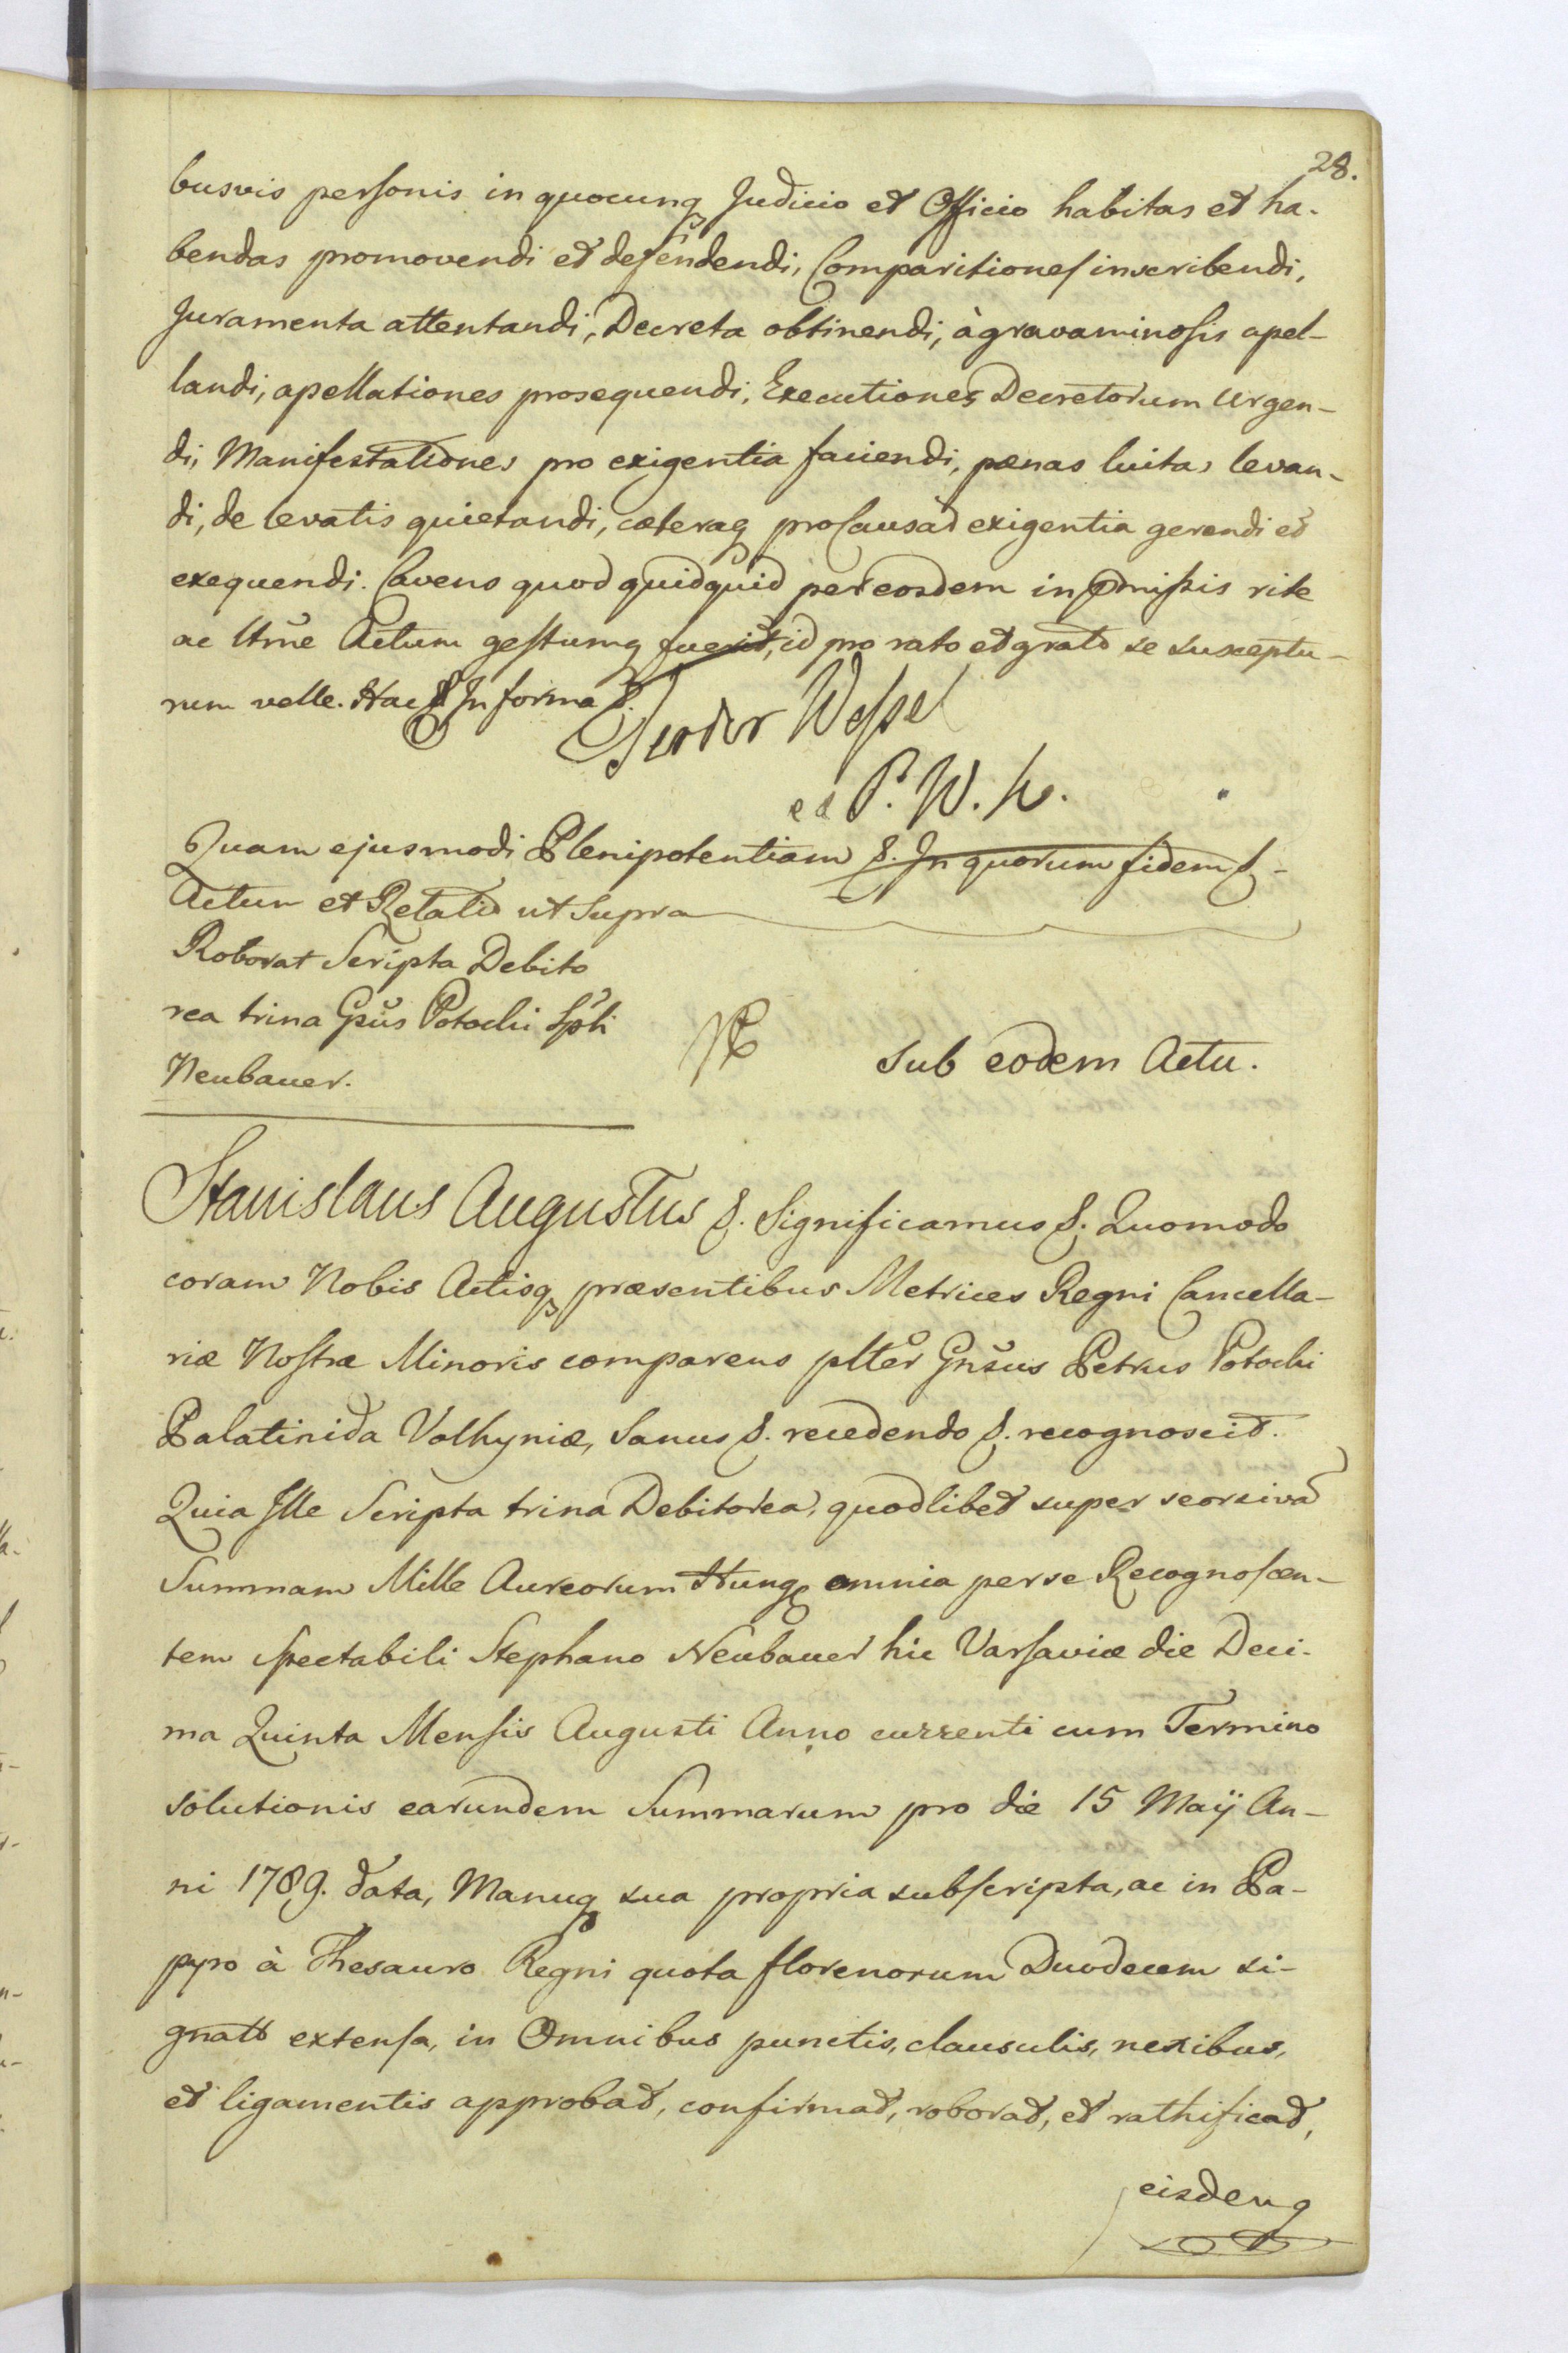 28.
busvis personis in quocunq Judicio et Officio habitas et ha-
bendas promovendi et defendendi, Comparitiones inscribendi,
Juramenta attentandi, Decreta obtinendi, à gravaminosis apel-
landi, apellationes prosequendi, Executiones Decretorum urgen-
di, Manifestationes pro exigentia faciendi, pænas luitas levan-
di, de levatis quietandi, cæteraq pro Causad exigentia gerendi et
exequendi. Cavens quod quidquid per eosdem in pmissis rite
ac ltme Actum gestumq fuerit, id pro rato et grato se susceptu-
rum velle. Hac In forma
Wessel
P. W. K.
Quam ejusmodi Plenipotentiam &. In quorum fidem &-
Actum et Relatio ut supra
Roborat Scripta Debito
rea trina Gsus Potocki Spli
Neubauer.
Sub eodem Actu.
Stanislaus Augustus &. Significamus &. Quomodo
coram Nobis Actisq præsentibus Metrices Regni Cancella-
riæ Nostræ Minoris comparens plter Gnsus Petrus Potocki
Palatinida Volhyniæ, Sanus &. recedendo &. recognoscit.
Quia Ille Scripta trina Debitorea, quodlibet super seorsiva
Summam Mille Aureorum Hung omnia per se Recognoscen-
tem Spectabili Stephano Neubauer hic Varsaviæ die Deci-
ma Quinta Mensis Augusti Anno currenti cum Termino
solutionis earundem Summarum pro die 15 Maÿ An-
ni 1789. data, Manuq sua propria subscripta, ac in Pa-
pyro à Thesauro Regni quota florenorum Duodecem si-
gnato extensa, in Omnibus punctis, clausulis, nexibus,
et ligamentis approbat, confirmat, roborat, et rathificat,
eisdemq